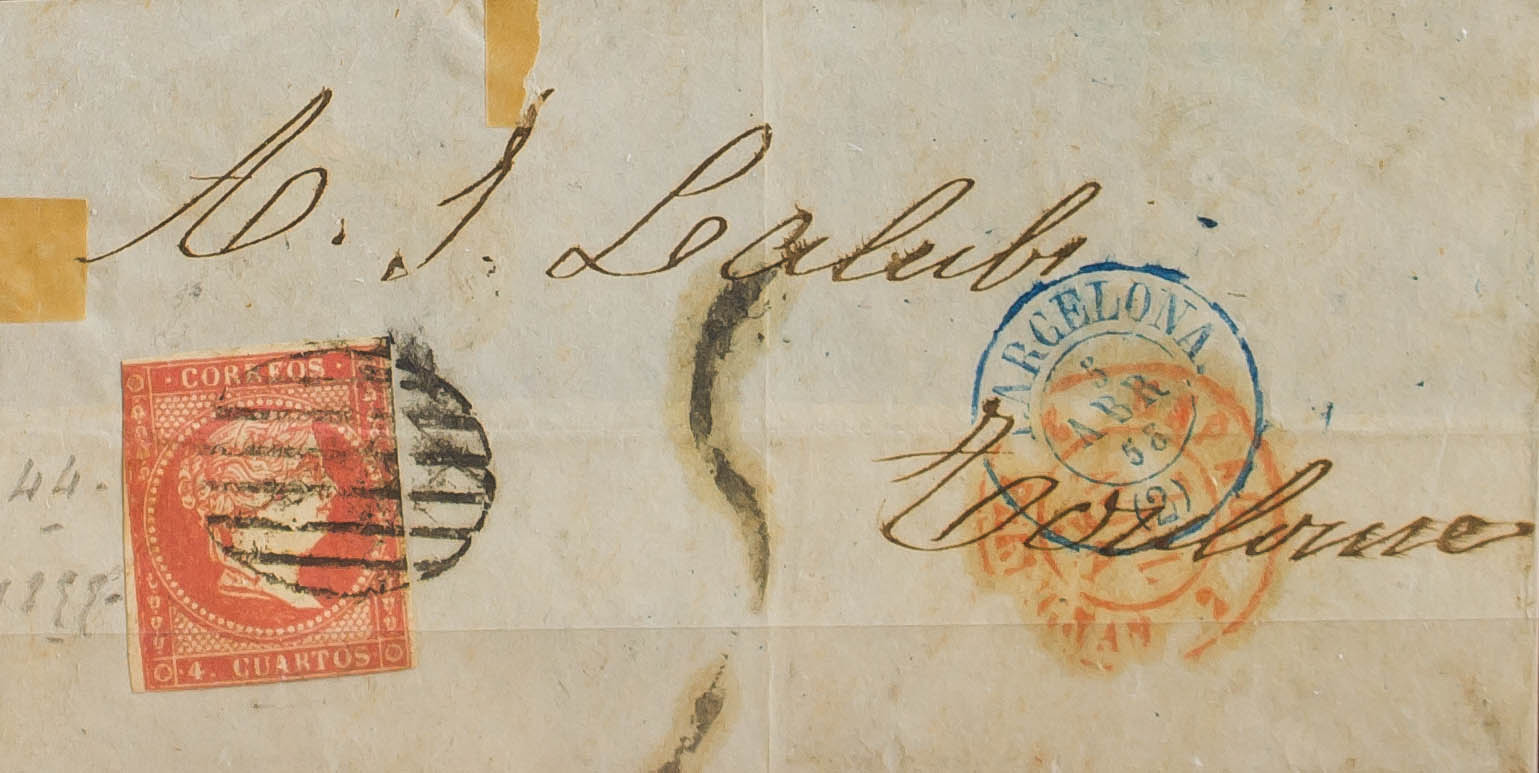 A. S. Lalubi
BARCELONA
5
ABR
58
(2)
Toulouse
CORREOS
4. CUARTOS
44.